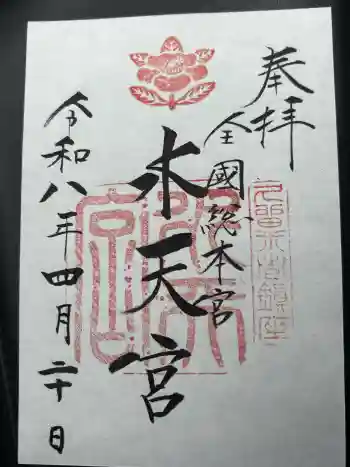 奉拝
全國総本宮
水天宮
令和八年四月二十日